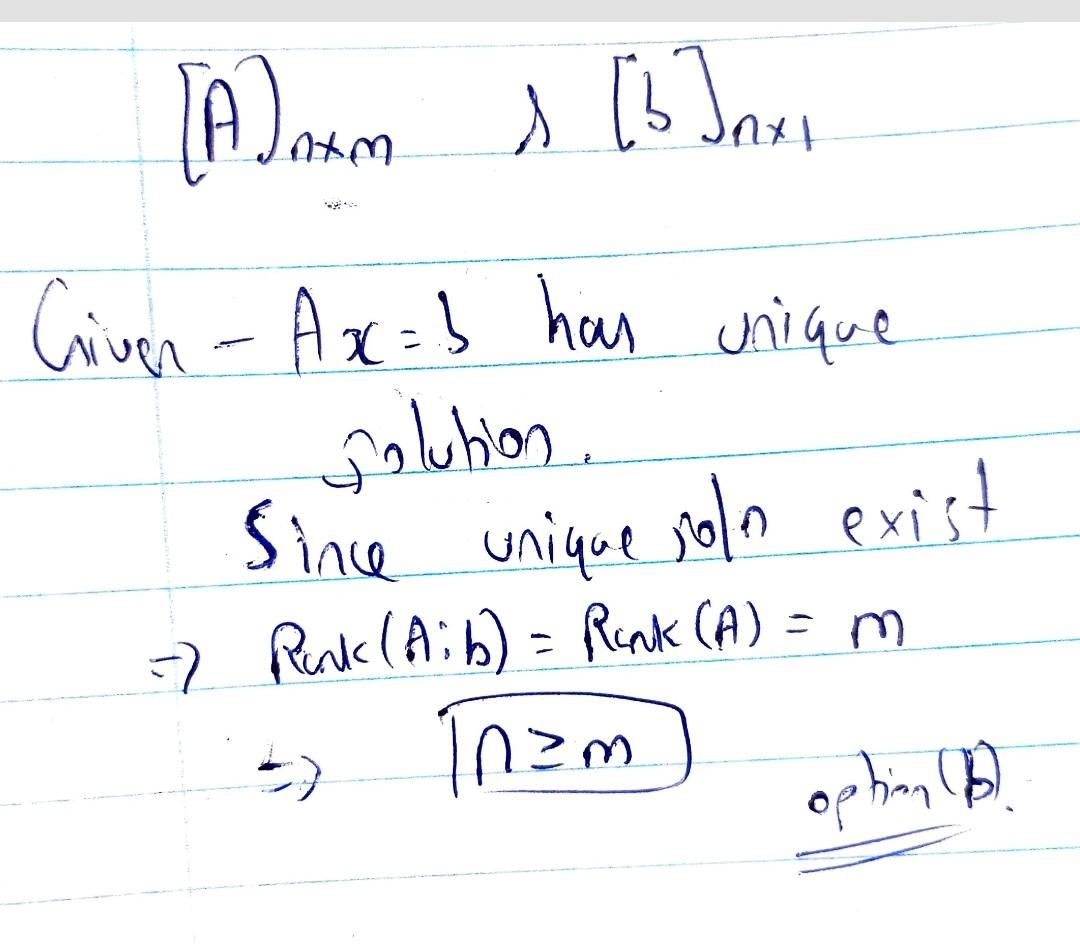 [A]n×m & [b]n×1
Given - Ax=b has unique
solution.
Since unique soln exist
=> Rank(A:b) = Rank(A) = m
=> n≥m
option(b).